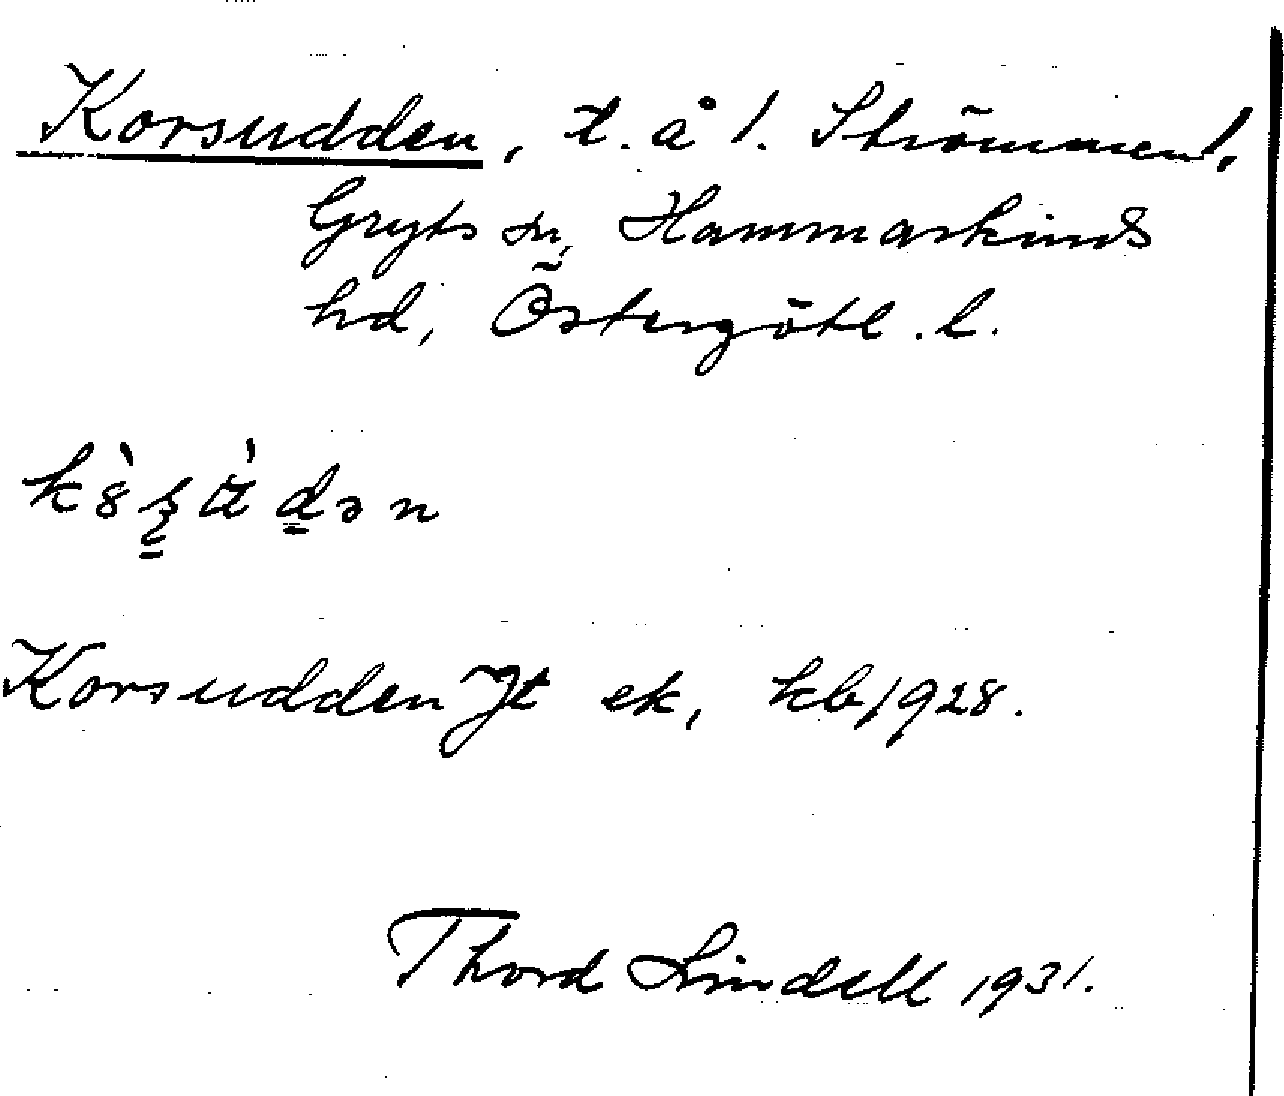 Korsudden, t. å 1. Strömmen 1.
Gryts sn, Hammarkinds
hd, Östergötl. l.
Korsudden Jt ek, kb 1928.
Thord Lindell 1931.